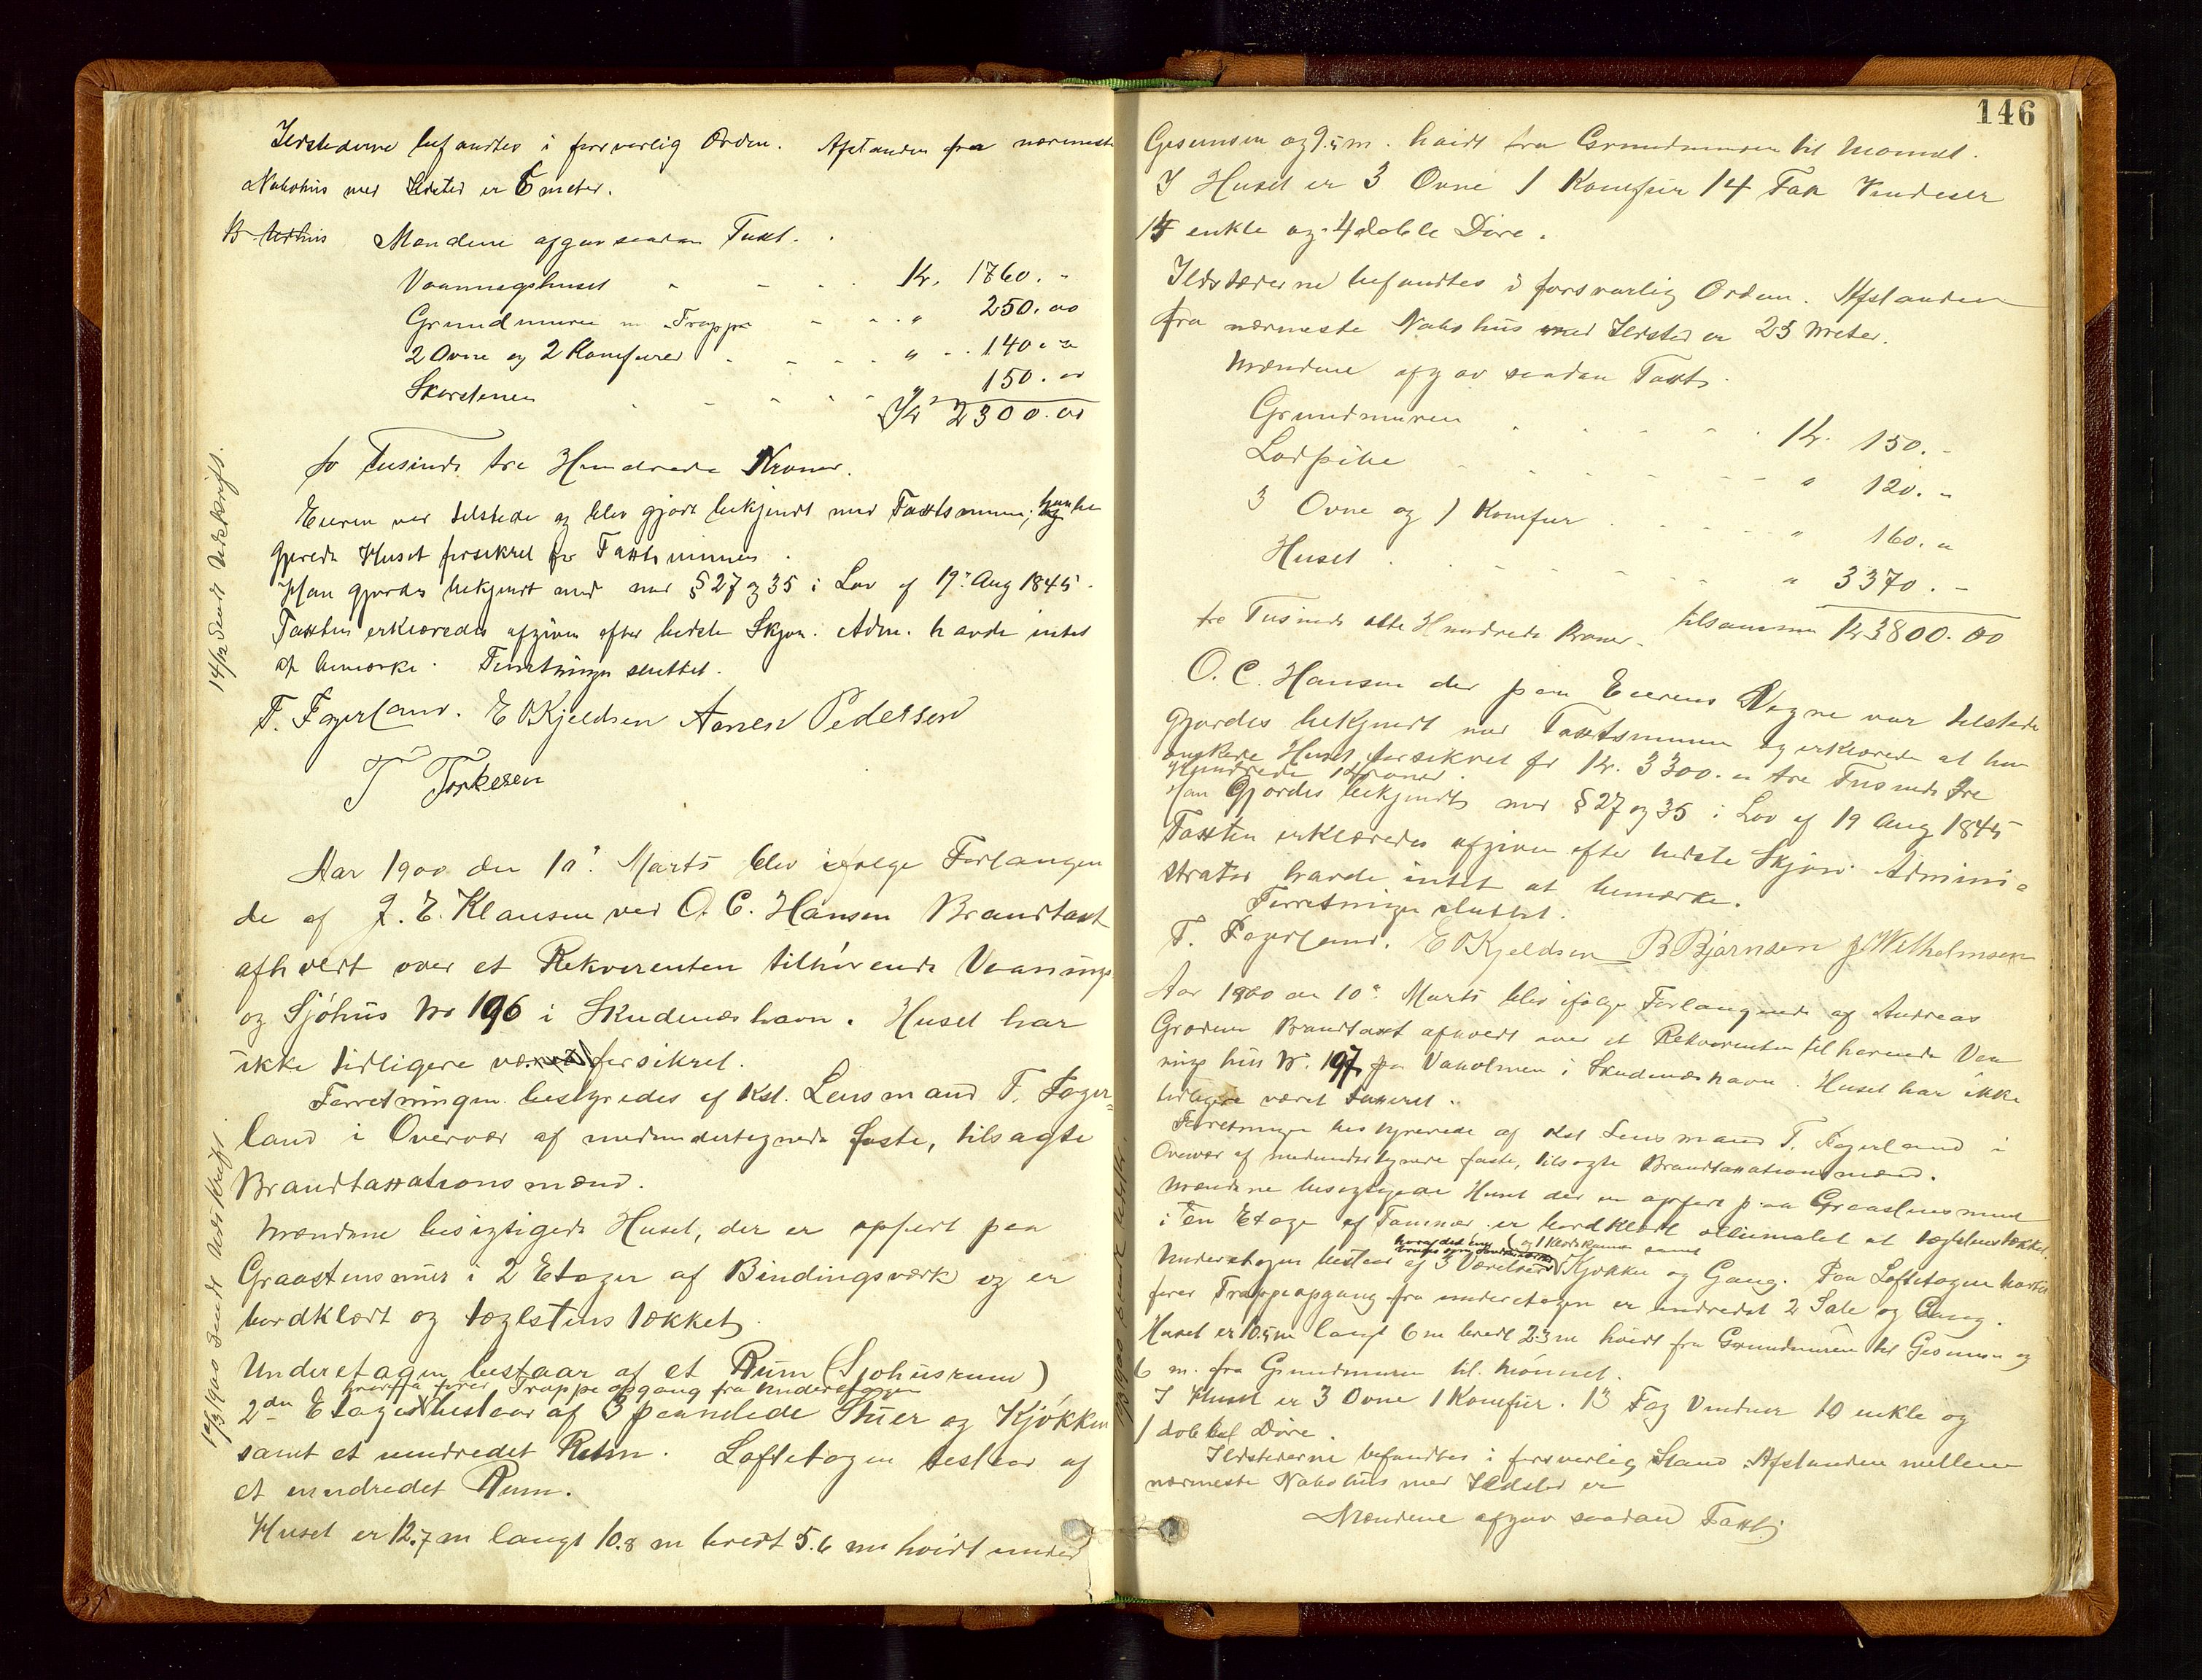 Ildstederne befandtes i forsvarlig Orden. Afstanden fra nærmeste
Nabohus med Ildsted er 6 meter.
Mændene afgav saadan Taxt.
Vaaningshuset Kr. 1760. -
Grundmuren m. Trappe " 250.00
2 Ovne og 2 Komfurer " 140.00
Skorstenen " 150.00
Kr 2300.00
to Tusinde tre Hundrede Kroner.
Eieren var tilstede og blev gjort bekjendt med Taxtsummen, han be
gjerede Huset forsikret for Taxtsummen.
Han gjordes bekjendt med § 27 og 35 i Lov af 19. Aug 1845.
Taxten erklæredes afgiven efter bedste Skjøn. Adm. havde intet
at bemærke. Forretningen sluttet.
T. Fagerland. E O Kjeldsen Pedersen
T Torkesen
14/12 sendt Udskrift.
Aar 1900 den 10. Marts blev ifølge Forlangen
de af J. E. Klausen ved O. C. Hansen Brandtaxt
afholdt over et Rekvirenten tilhørende Vaanings
og Sjøhus No 196 i Skudeneshavn. Huset har
ikke tidligere været forsikret.
Forretningen bestyredes af Kst. Lensmand T. Fager-
land i Overvær af medundertegnede faste, tilsagte
Brandtaxationsmænd.
Mændene besigtigede Huset, der er opført paa
Graastensmur i 2 Etager af Bindingsværk og er
bordklædt og teglstens tækket.
Underetagen bestaar af et Rum (Sjøhusrum)
hvorfra fører Trappeopgang fra Underetagen
2den Etage bestaar af 3 panelede Stuer og Kjøkken
samt et uindredet Rum. Loftetagen bestaar af
et uindredet Rum.
Huset er 12.7 m langt 10.8 m bredt 5.6 m høidt under
10/3 1900 sendt Udskrift.
146
Gesimsen og 9.5 m. høidt fra Grundmuren til Mønnet.
I Huset er 3 Ovne 1 Komfur 14 Fag Vinduer
15 enkle og 4 doble Døre.
Ildstederne befandtes i forsvarlig Orden. Afstanden
fra nærmeste Nabohus med Ildsted er 23 Meter.
Mændene afgav saadan Taxt.
Grundmuren Kr. 150. -
Lodpibe " 120. "
3 Ovne og 1 Komfur " 160. "
Huset " 3370. -
tre Tusinde otte Hundrede Kroner. tilsammen Kr 3800.00
O. C. Hansen der paa Eierens Vegne var tilstede
gjordes bekjendt med Taxtsummen og erklærede at han
ønskede Huset forsikret for Kr. 3300. tre Tusinde tre
Hundrede Kroner.
Han gjordes bekjendt med § 27 og 35 i Lov af 19 Aug 1845
Taxten erklæredes afgiven efter bedste Skjøn. Admini-
strator havde intet at bemærke.
Forretningen sluttet.
T. Fagerland. E O Kjeldsen B Bjørnsen J Wilhelmsen
Aar 1900 den 10. Marts blev ifølge Forlangende af Andreas
Grødem Brandtaxt afholdt over et Rekvirenten tilhørende Vaa
nings hus No. 197 paa Vaholmen i Skudeneshavn. Huset har ikke
tidligere været taxeret.
Forretningen bestyrede af Kst Lensmand T. Fagerland i
Overvær af medundertegnede faste, tilsagte Brandtaxationsmænd.
Mændene besigtigede Huset der er opført paa Graastensmur
i en Etage af Tømmer er bordklædt oliemalet og teglstenstækket.
Underetagen bestaar af 3 Værelser Kjøkken og Gang. Paa Loftetagen hvortil
fører Trappeopgang fra underetagen er indredet 2 Sale og Gang.
Huset er 10.5 m langt 6 m bredt 2.3 m høidt fra Grundmuren til Gesimsen og
6 m. fra Grundmuren til Mønnet.
I Huset er 3 Ovne 1 Komfur. 13 Fag Vinduer 10 enkle og
1 dobbel Døre.
Ildstederne befandtes i forsvarlig Stand Afstanden mellem
nærmeste Nabohus med Ildsted er
Mændene afgav saadan Taxt;